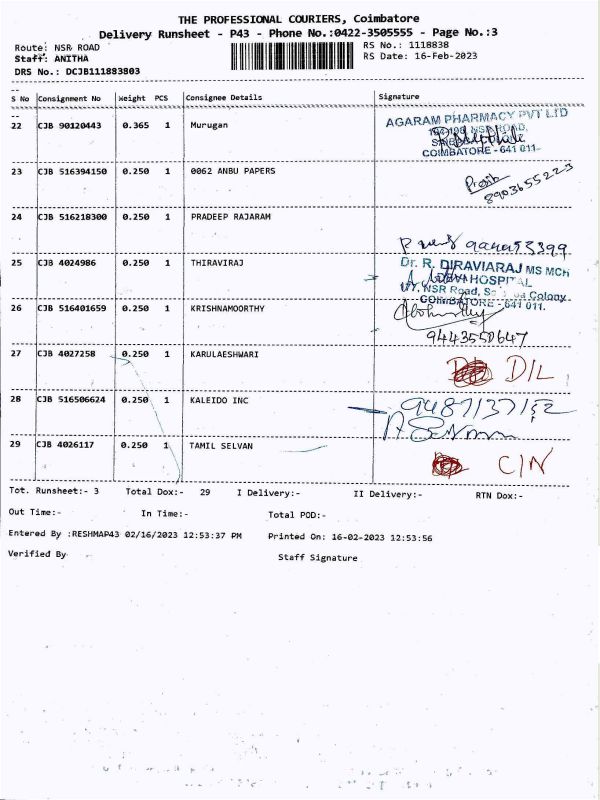 THE PROFESSIONAL COURIERS, Coimbatore
Delivery Runsheet - P43 - Phone No.:0422-3505555 - Page No.:3
Route: NSR ROAD
RS No.: 1118838
Staff: ANITHA
RS Date: 16-Feb-2023
DRS No.: DCJB111883803
S No Consignment No Weight PCS Consignee Details Signature
22 CJB 90120443 0.365 1 Murugan
AGARAM PHARMACY PVT LTD
NSR ROAD,
COIMBATORE - 641 011.
23 CJB 516394150 0.250 1 0062 ANBU PAPERS
8903655223
24 CJB 516218300 0.250 1 PRADEEP RAJARAM
25 CJB 4024986 0.250 1 THIRAVIRAJ
Dr. R. DIRAVIARAJ MS MCh
HOSPITAL
NSR Road, Colony
COIMBATORE - 641 011.
26 CJB 516401659 0.250 1 KRISHNAMOORTHY
9443550647
27 CJB 4027258 0.250 1 KARULAESHWARI
D/L
28 CJB 516506624 0.250 1 KALEIDO INC
29 CJB 4026117 0.250 1 TAMIL SELVAN
C/N
Tot. Runsheet:- 3 Total Dox:- 29 I Delivery:- II Delivery:- RTN Dox:-
Out Time:- In Time:- Total POD:-
Entered By :RESHMAP43 02/16/2023 12:53:37 PM Printed On: 16-02-2023 12:53:56
Verified By Staff Signature